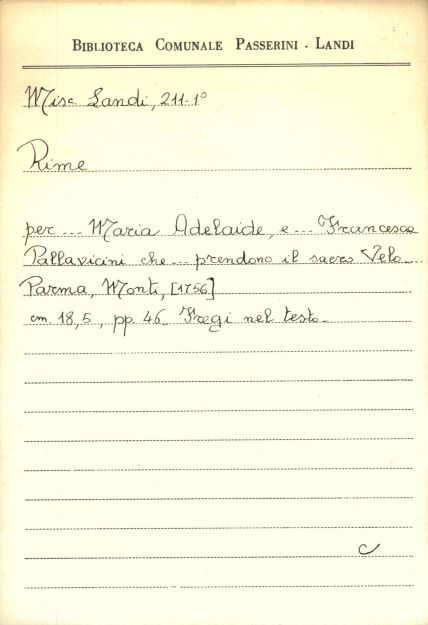 BIBLIOTECA COMUNALE PASSERINI - LANDI
Misc Landi, 211-1°
Rime
per ... Maria Adelaide, e ... Francesca
Pallavicini che ... prendono il sacro Velo
Parma, Monti, [1756]
cm. 18,5, pp. 46. Fregi nel testo.
C